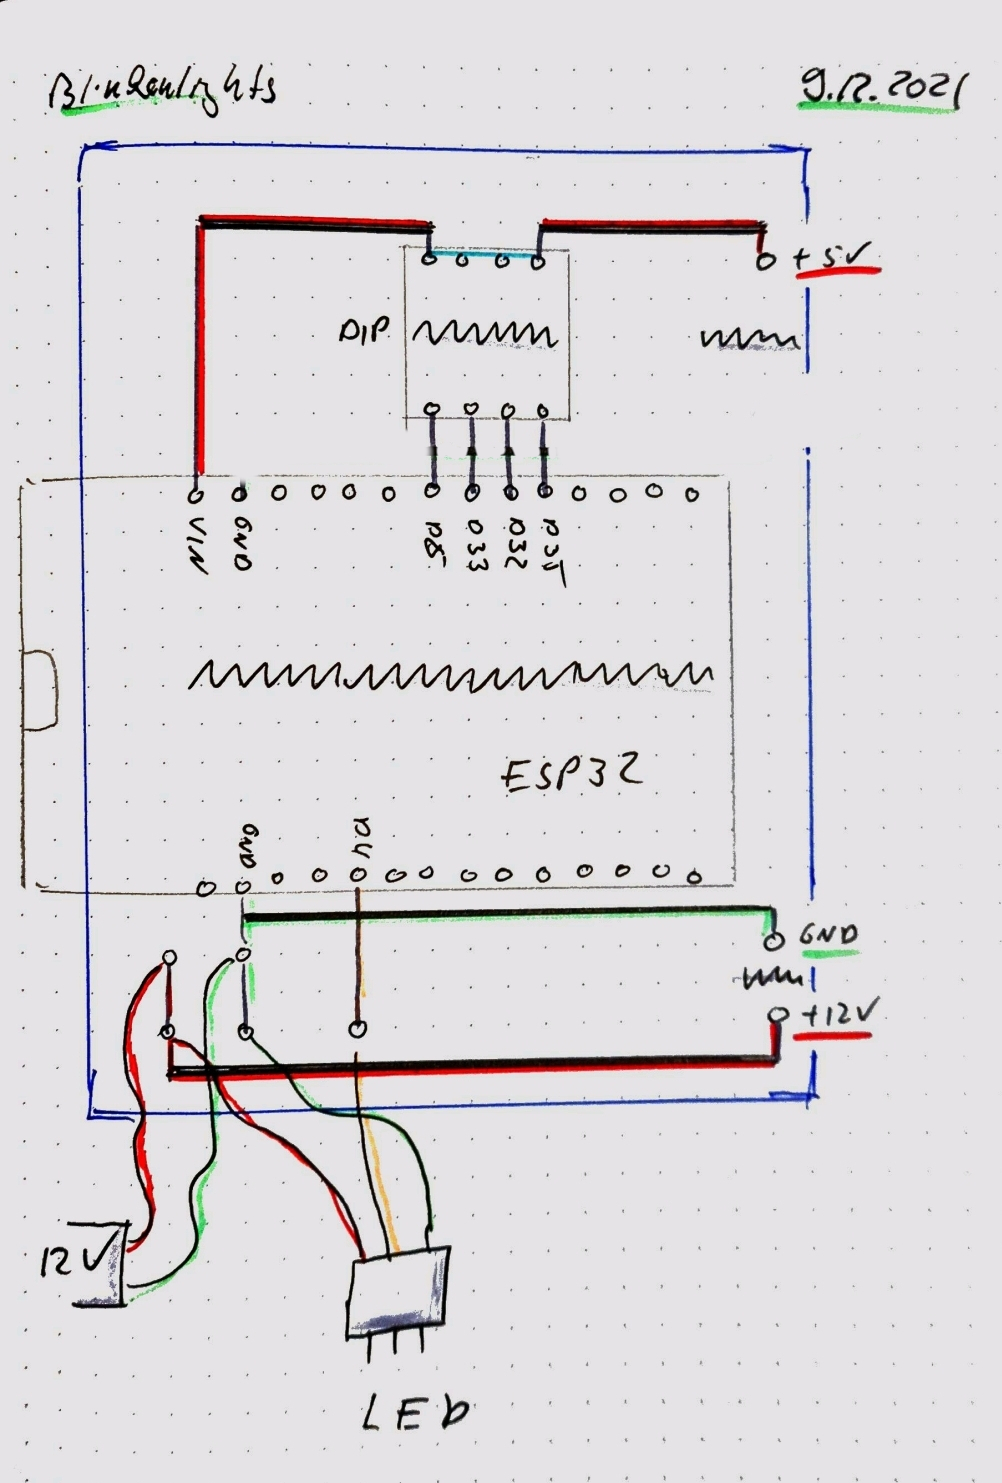 Blinkenlights
9.12.2021
+ 5V
DIP
VIN
GND
D33
D32
D35
ESP32
GND
GND
+12V
12V
LED